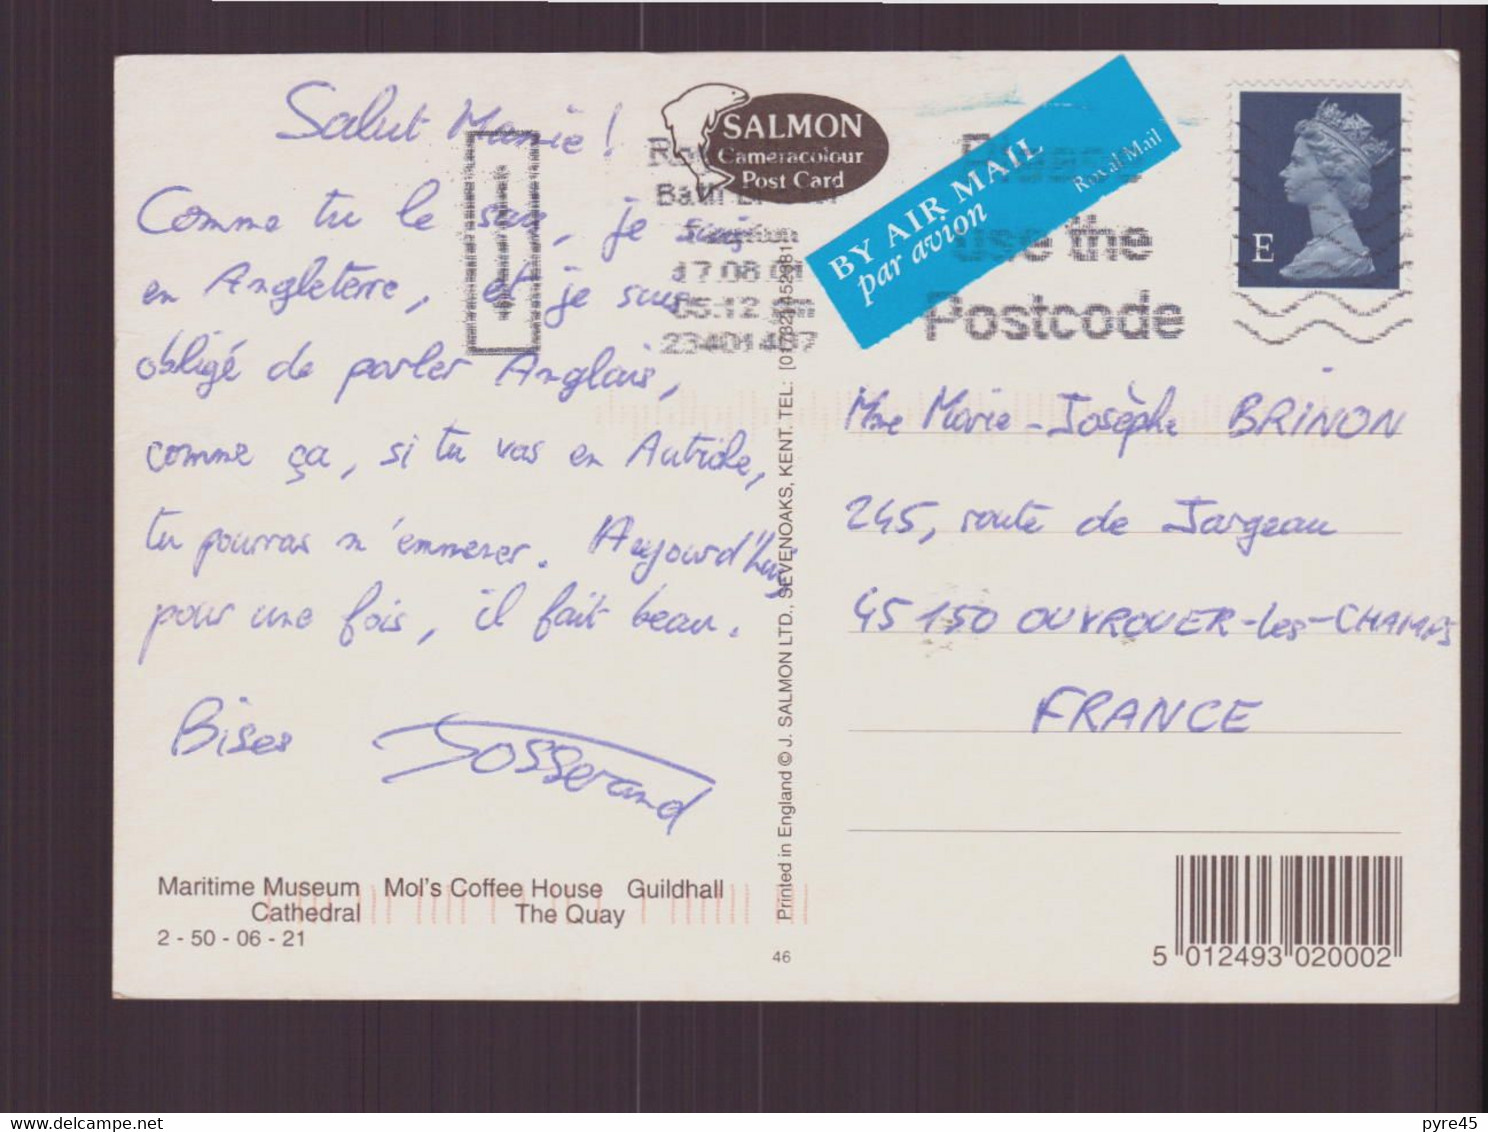 Salut Marie !
Comme tu le sais, je suis
en Angleterre, et je suis
obligé de parler Anglais,
comme ça, si tu vas en Autriche,
tu pourras m'emmener. Aujourd'hui
pour une fois, il fait beau.
Bises Josserand
Maritime Museum Mol's Coffee House Guildhall
Cathedral The Quay
2 - 50 - 06 - 21
SALMON
Cameracolour
Post Card
17.08.01
05.12
Printed in England © J. SALMON LTD., SEVENOAKS, KENT. TEL:
46
BY AIR MAIL
par avion
Royal Mail
Please
use the
Postcode
E
Mme Marie-Josèphe BRINON
245, route de Jargeau
45150 OUVROUER-les-CHAMPS
FRANCE
5 012493 020002
pyre45